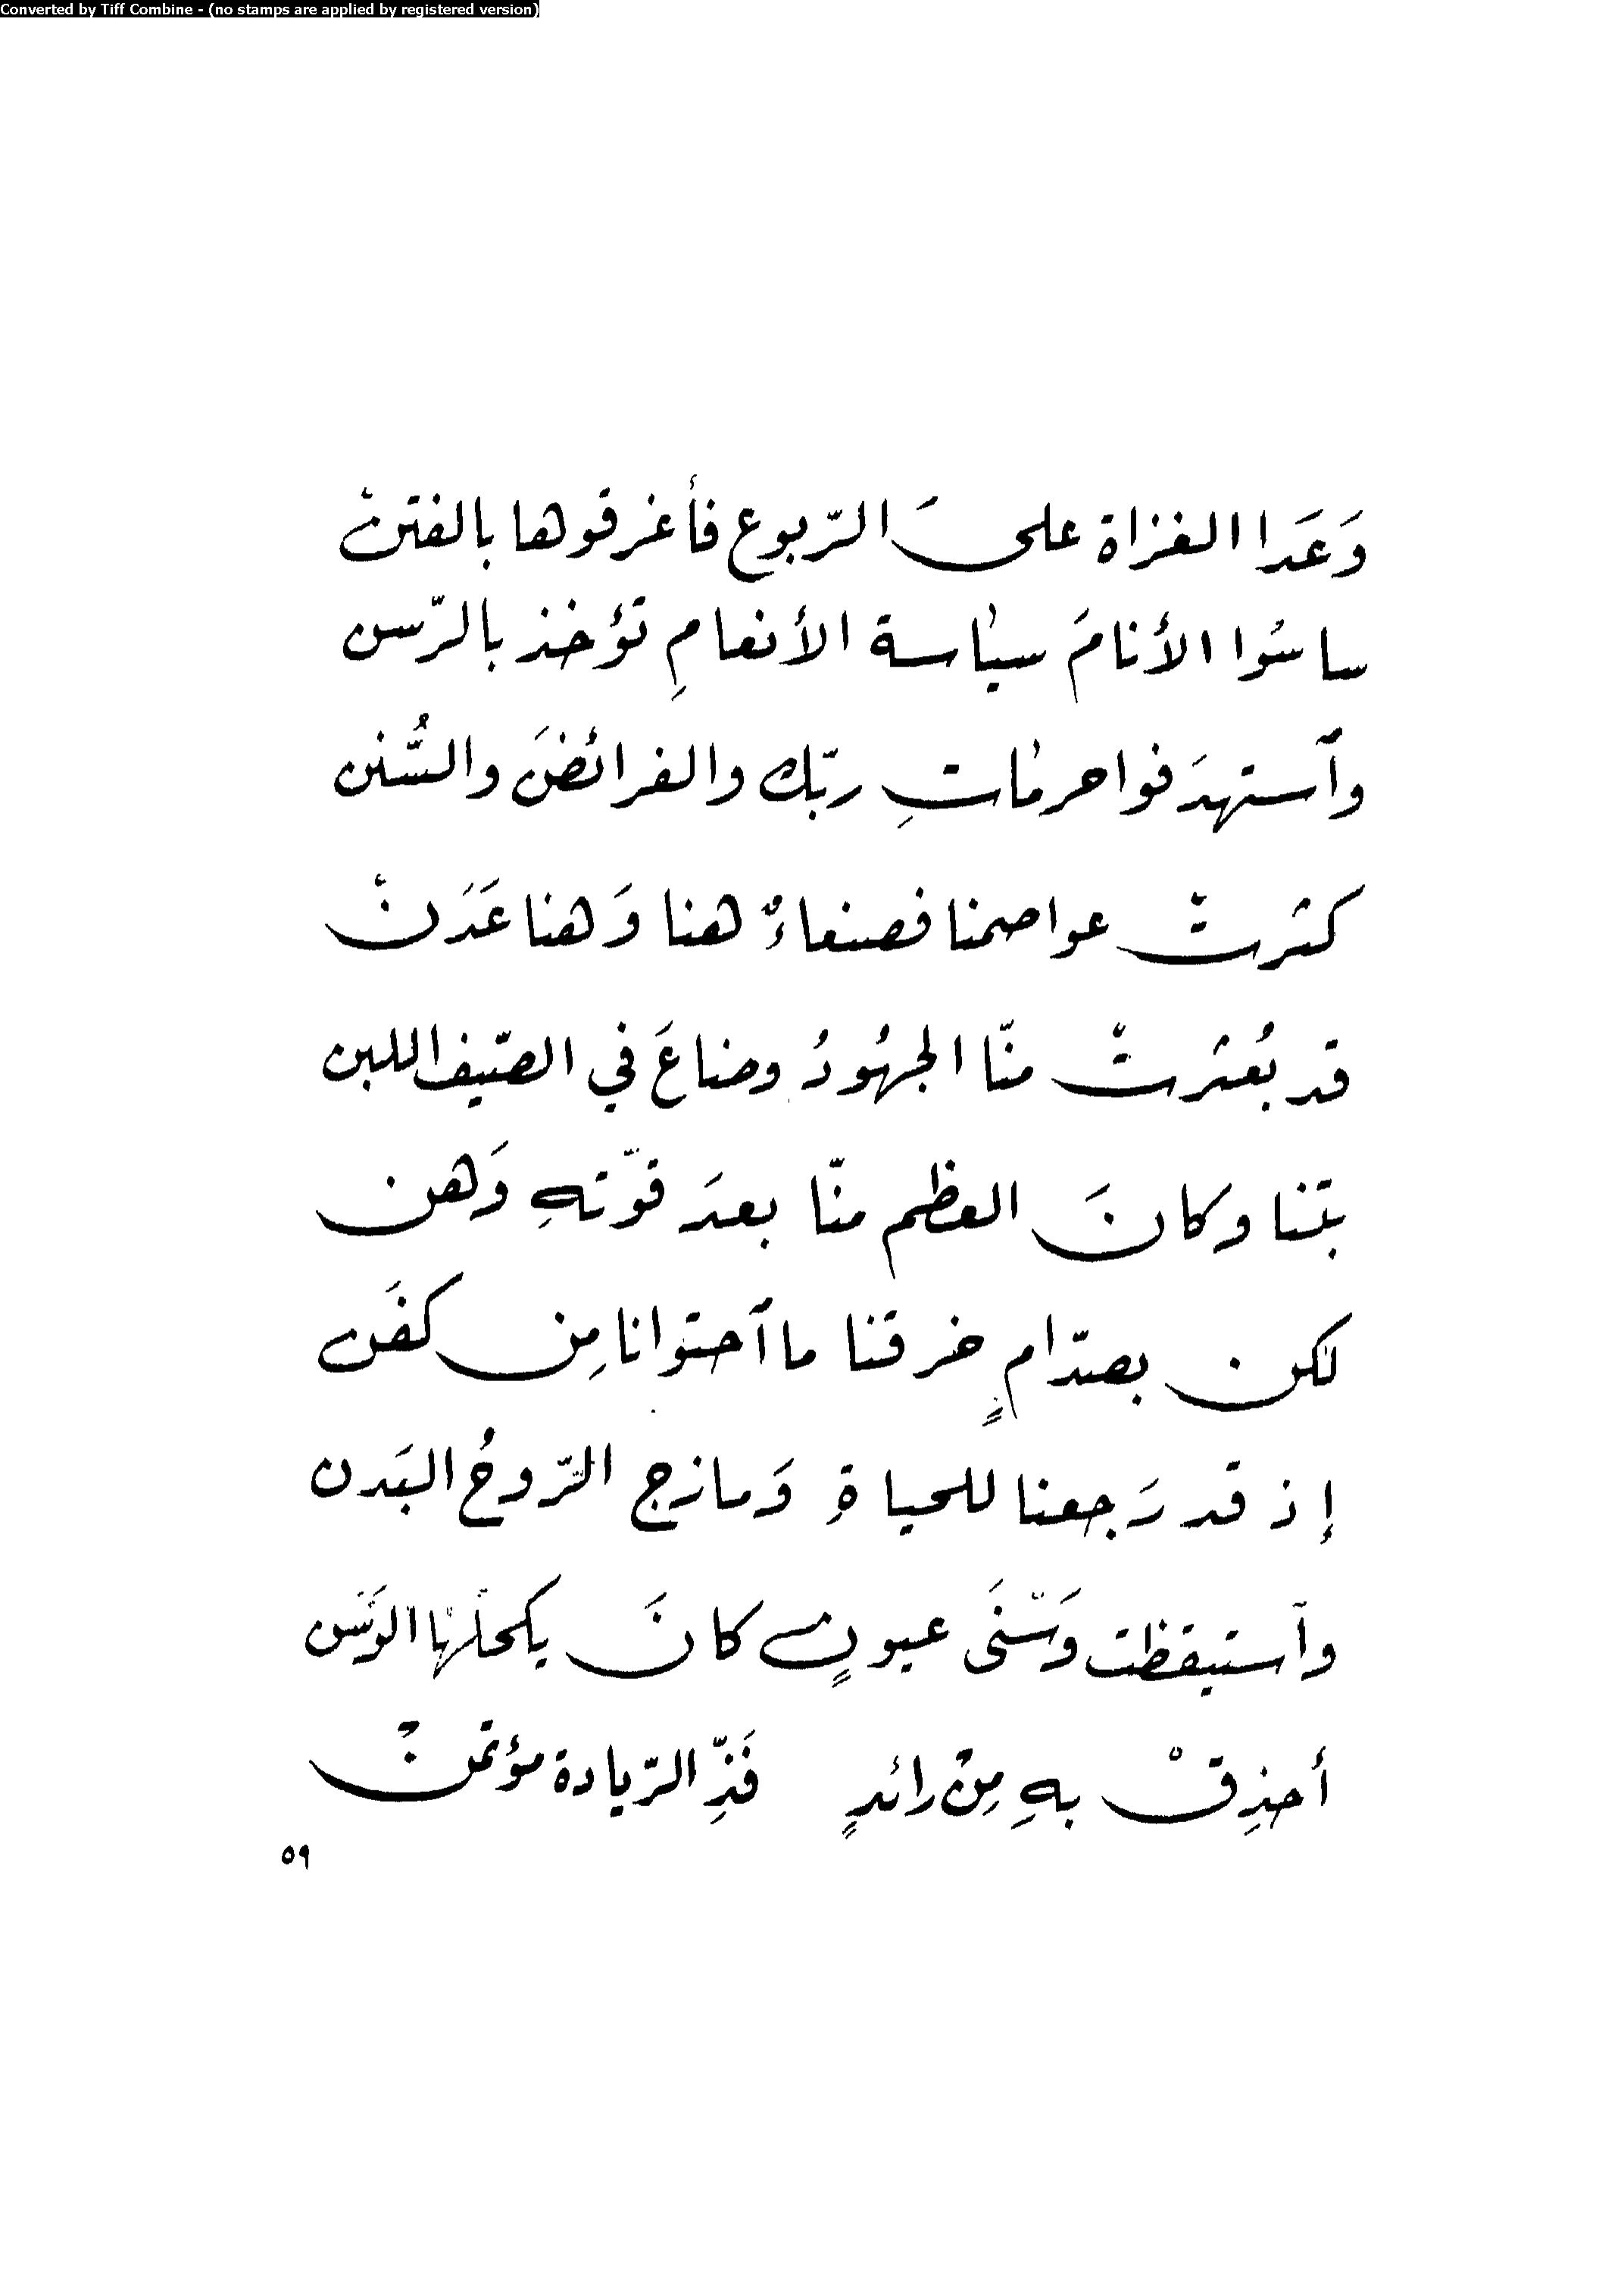 Converted by Tiff Combine - (no stamps are applied by registered version)
وَعَدَا الغزاة علىَ الرّبوع فأغرقوها بالفتنْ
ساسُوا الأنامَ سيَاسة الأنعامِ تؤخذ بالرّسن
وآستهدَفوا حرمَاتِ ربّك والفرائضَ والسُّنن
كثرتْ عواصمنا فصنعاءٌ هنا وَهنا عَدَنْ
قد بُعثرتْ منّا الجهُودُ وضاعَ في الصّيف اللبن
بتنا وكانَ العظم منّا بعدَ قوّتهِ وَهن
لكن بصدّامٍ خرقنا ما آحتوانا مِن كفَن
إذ قد رَجعنا للحياةِ وَمازج الرّوحُ البَدن
وآستيقظت وَسْنَى عيونٍ كانَ يكحلُها الوَسَن
أحذِقْ بهِ مِنْ رائدٍ فَذِّ الرّيادة مؤتمنْ
٥٩